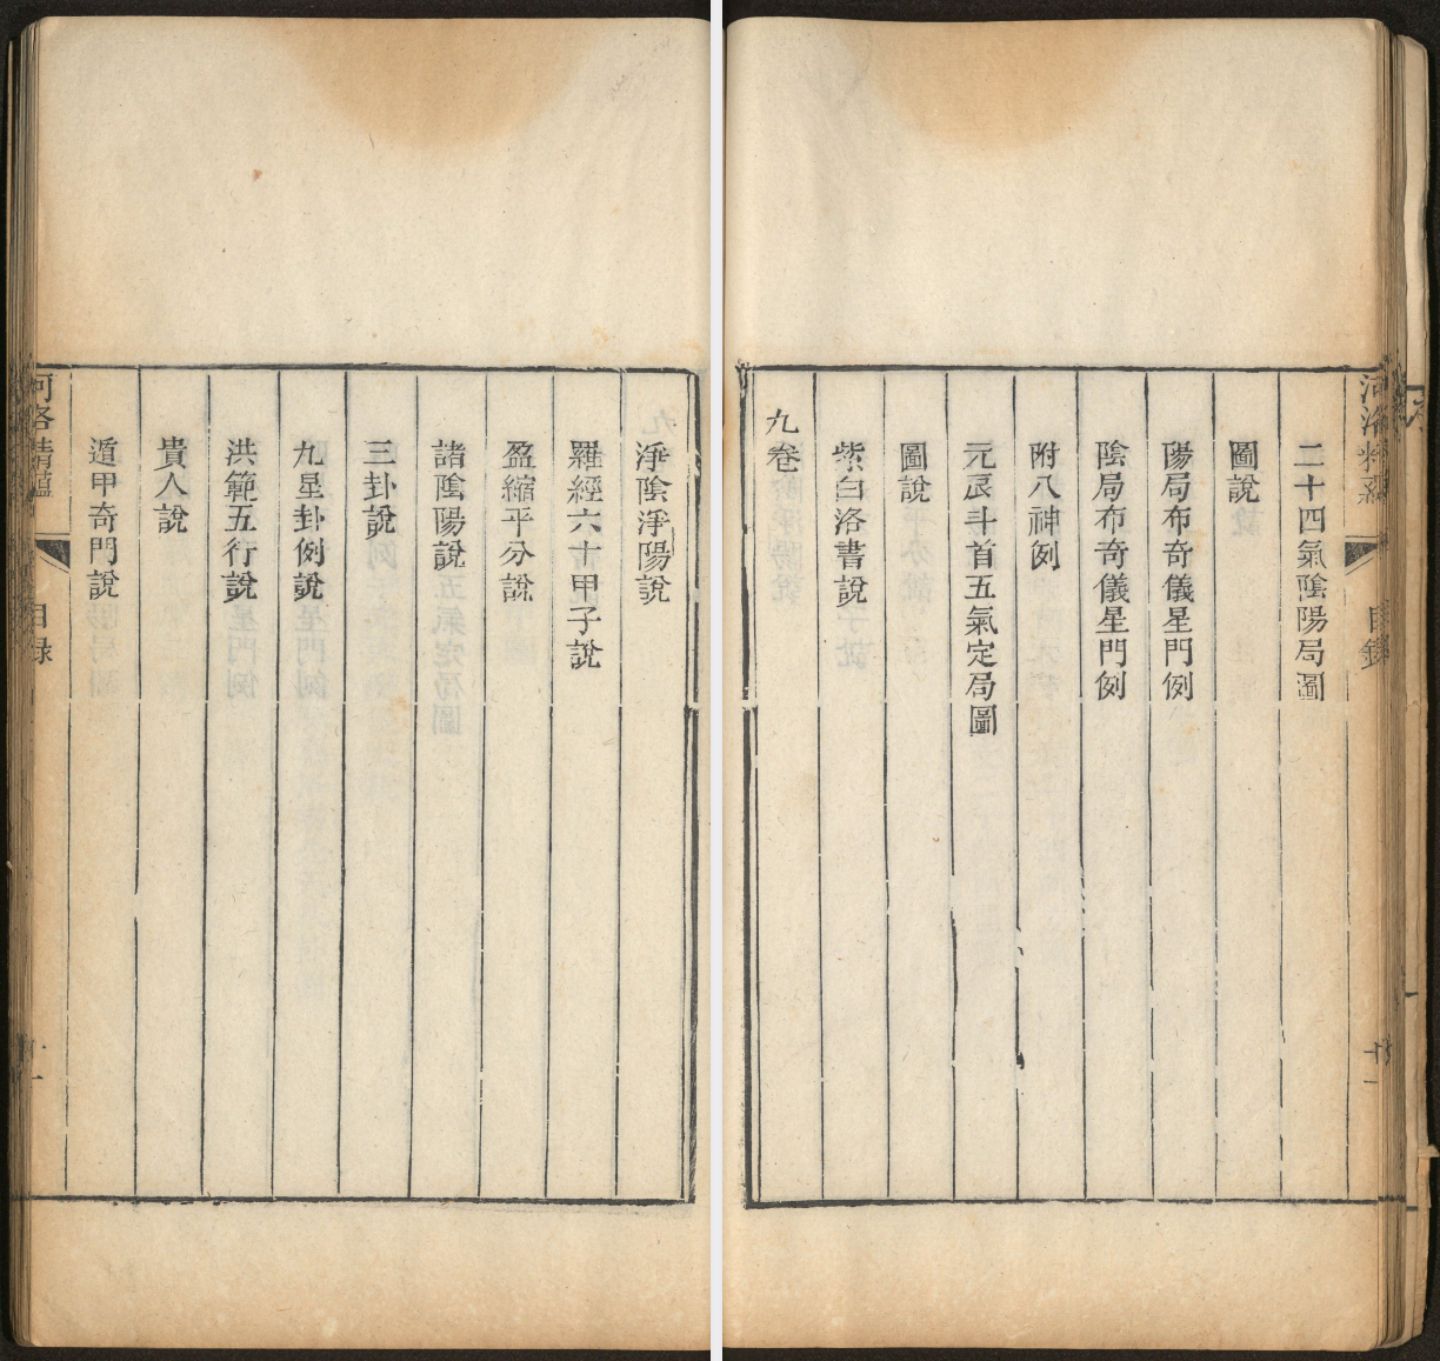 二十四氣陰陽局圖
圖說
陽局布奇儀星門例
陰局布奇儀星門例
附八神例
元辰斗首五氣定局圖
圖說
紫白洛書說
九卷
淨陰淨陽說
羅經六十甲子說
盈縮平分說
諸陰陽說
三卦說
九星卦例說
洪範五行說
貴人說
遁甲奇門說
河洛精蘊
目録